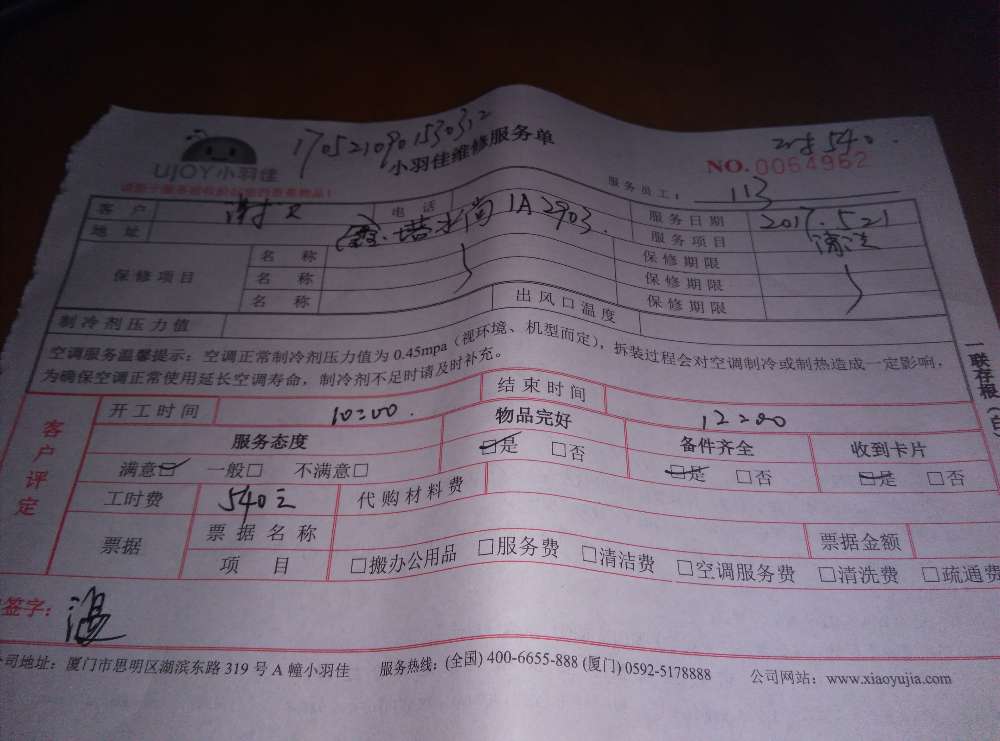 1705210901530312
对 540.
UJOY小羽佳
小羽佳维修服务单
NO. 0064962
服务员工： 113
客户 电话 服务日期 2017.5.21
地址 鑫·塔水尚1A2903. 服务项目 清洗
保修项目 名称 保修期限
名称 保修期限
名称 保修期限
制冷剂压力值 出风口温度
空调服务温馨提示：空调正常制冷剂压力值为 0.45mpa（视环境、机型而定），拆装过程会对空调制冷或制热造成一定影响，
为确保空调正常使用延长空调寿命，制冷剂不足时请及时补充。
一联存根
客户评定
开工时间 10:00. 结束时间 12:00
服务态度 物品完好 备件齐全 收到卡片
满意☑ 一般□ 不满意□ ☑是 □否 ☑是 □否 ☑是 □否
工时费 540元 代购材料费
票据 票据名称 票据金额
项目 □搬办公用品 □服务费 □清洁费 □空调服务费 □清洗费 □疏通费
签字： 温
公司地址：厦门市思明区湖滨东路 319 号 A 幢小羽佳 服务热线：(全国) 400-6655-888 (厦门) 0592-5178888 公司网站：www.xiaoyujia.com